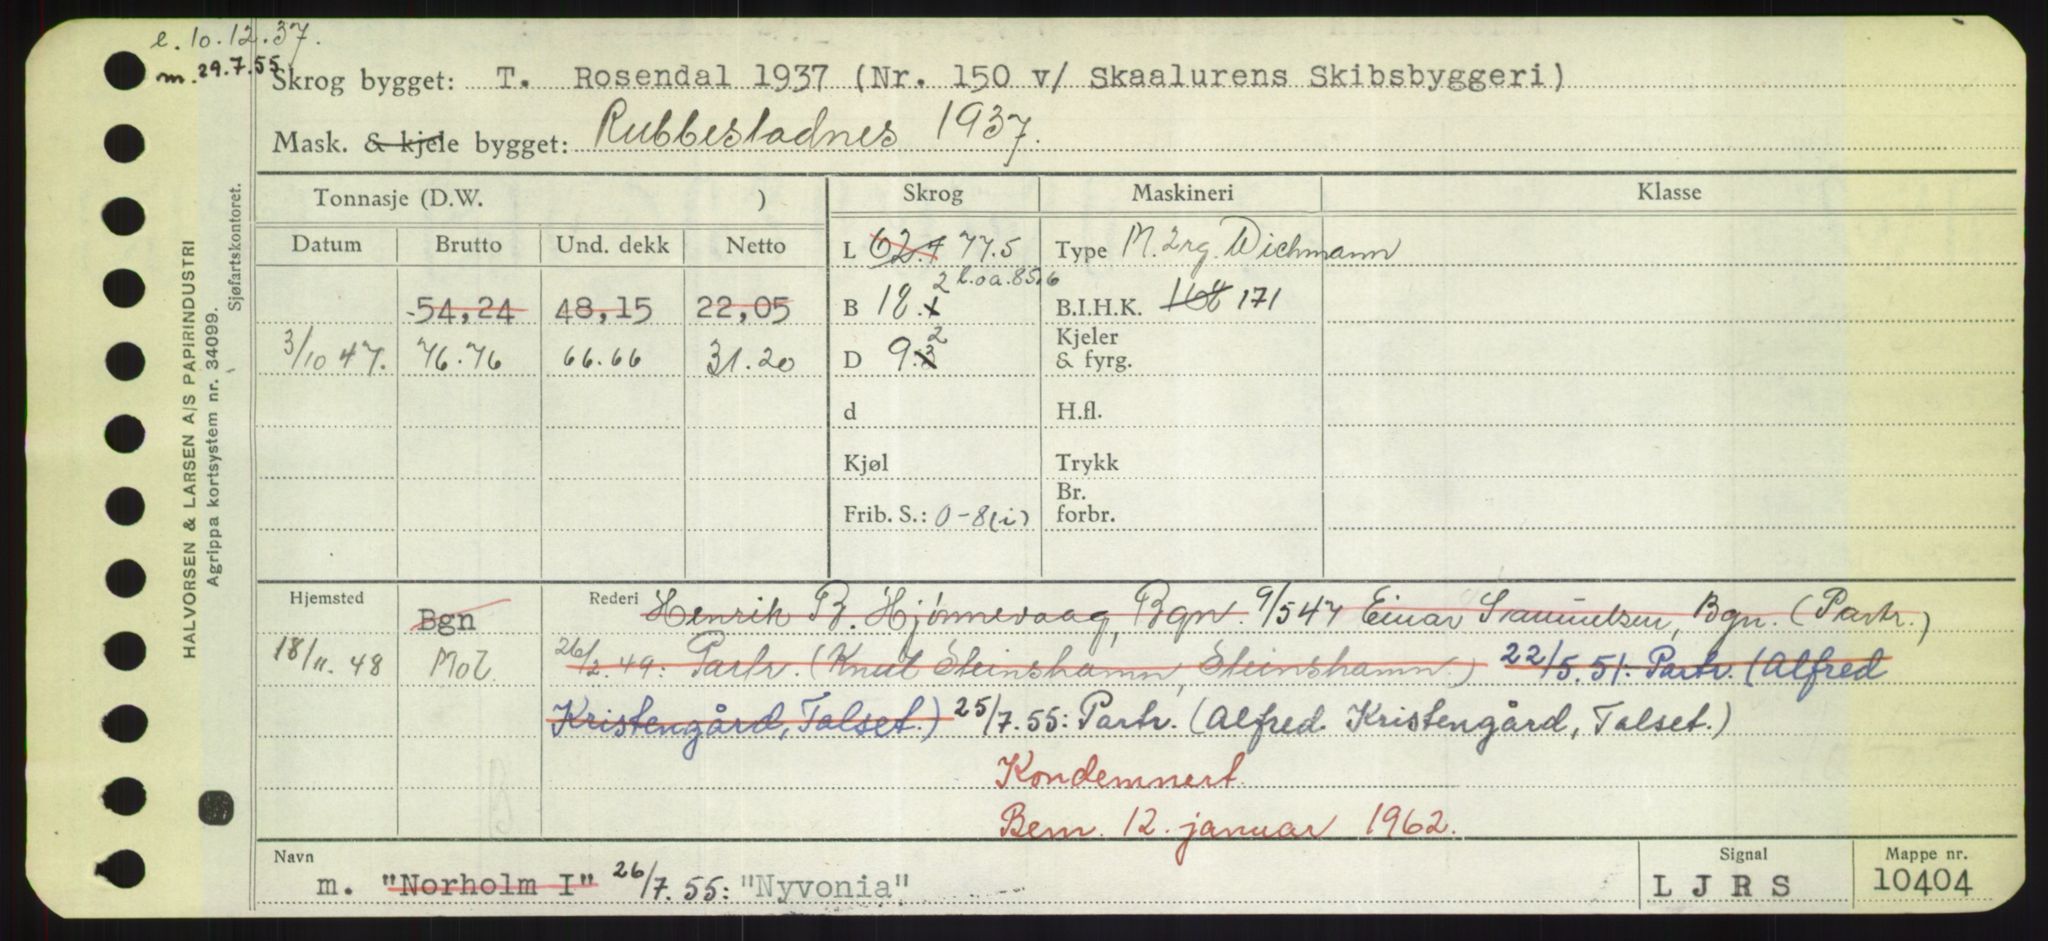 e. 10.12.37.
m. 29.7.55
Skrog bygget: T. Rosendal 1937 (Nr. 150 v/ Skaalurens Skibsbyggeri)
Mask. & kjele bygget: Rubbestadnes 1937.
Tonnasje (D.W. )
Skrog
Maskineri
Klasse
Datum Brutto Und. dekk Netto
L 62.7 77.5
Type M. 2rg. Wichmann
l.oa. 85,6
54,24 48,15 22,05
B 18.x 2
B.I.H.K. 168 171
3/10 47. 76.76 66.66 31.20
D 9.3 2
Kjeler
& fyrg.
d
H.fl.
Kjøl
Trykk
Frib. S.: 0-8(i)
Br.
forbr.
Hjemsted Bgn
Rederi Henrik B. Hjønnevaag, Bgn. 9/5 47 Einar Samuelsen, Bgn. (Partr.)
18/11. 48 Mol 26/2.49: Partr. (Knut Steinshamn, Steinshamn.) 22/5.51: Partr. (Alfred
Kristengård, Talset.) 25/7.55: Partr. (Alfred Kristengård, Talset.)
Kondemnert.
Bem. 12. januar 1962.
Navn
m. "Norholm I" 26/7.55: "Nyvonia"
Signal
LJRS
Mappe nr.
10404
HALVORSEN & LARSEN A/S PAPIRINDUSTRI
Agrippa kortsystem nr. 34099.
Sjøfartskontoret.